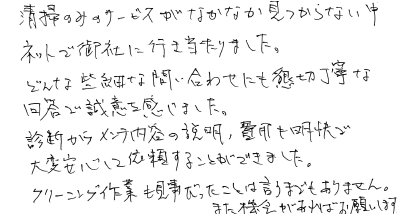 清掃のみのサービスがなかなか見つからない中
ネットで御社に行き当たりました。
どんな些細な問い合わせにも懇切丁寧な
回答で誠意を感じました。
診断からメンテ内容の説明，費用も明快で
大変安心して依頼することができました。
クリーニング作業も見事だったことは言うまでもありません。
また機会があればお願いします